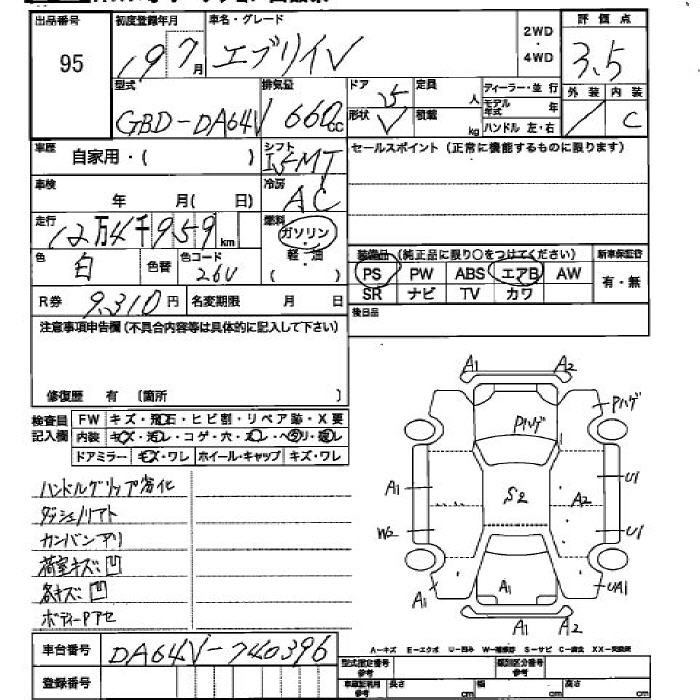 出品番号
95
初度登録年月
19 7月
車名・グレード
エブリイV
2WD
・
4WD
評価点
3.5
外装 内装
C
型式
GBD-DA64V
排気量
660cc
ドア 5
形状 V
定員 人
積載 kg
ディーラー・並行
モデル年式 年
ハンドル 左・右
車歴
自家用・( )
シフト
冷房
AC
セールスポイント (正常に機能するものに限ります)
車検
年 月( 日)
走行
12万4千959km
燃料
ガソリン
軽・油
( )
色
白
色替
色コード
26U
装備品 (純正品に限り〇をつけてください)
新車保証書
PS PW ABS エアB AW
SR ナビ TV カワ
有・無
R券 9,310円
名変期限 月 日
後日品
注意事項申告欄 (不具合内容等は具体的に記入して下さい)
修復歴 有 [箇所 ]
検査員記入欄
FW キズ・飛石・ヒビ割・リペア跡・X要
内装
コゲ・穴
ドアミラー キズ・ワレ ホイール・キャップ キズ・ワレ
ハンドルグリップ劣化
ダッシュリアト
カンバンアリ
荷室キズ凹
各キズ凹
ボディーPアセ
A1 A2
Pハゲ
Pハゲ
A1
S2
A2
U1
W2
U1
A1
A1
UA1
A1 A2
A-キズ E-エクボ U-凹み W-補修跡 S-サビ C-腐食 XX-交換済
車台番号
DA64V-740396
登録番号
型式指定番号
参考
類別区分番号
参考
長さ cm 幅 cm 高さ cm